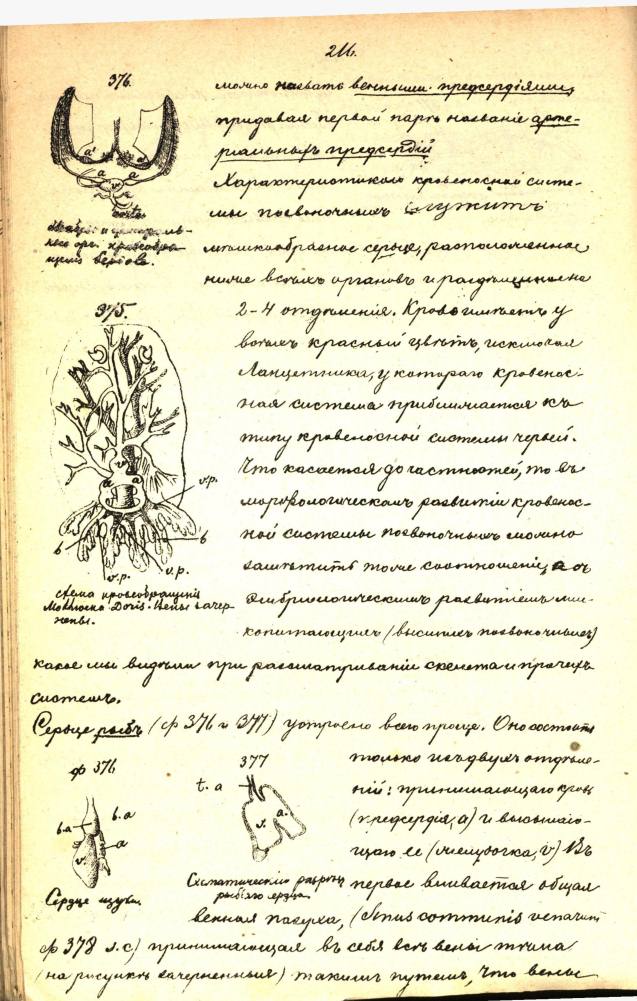 216.
376.
можно назвать венными предсердіями,
придавая первой парѣ названіе арте-
ріальныхъ предсердій
Характеристикою кровеносной систе-
мы позвоночныхъ служитъ
мѣшкообразное сердце, расположенное
ниже всѣхъ органовъ и раздѣленное на
2-4 отдѣленія. Кровь имѣетъ у
всѣхъ красный цвѣтъ, исключая
Ланцетника, у котораго кровенос-
ная система приближается къ
типу кровеносной системы червей.
Что касается до частностей, то въ
морфологическомъ развитіи кровенос-
ной системы позвоночныхъ можно
замѣтить тоже соотношеніе, съ
эмбріологическимъ развитіемъ мле-
копитающихъ (высшихъ позвоночныхъ)
какое мы видѣли при разсматриваніи скелета и прочихъ
системъ.
a' a' a a v
aorta
Жабры и
органы кровообра-
щенія
375.
v a a v.p.
b b
v.p. v.p.
Схема кровообращенія
Моллюска Doris. Вены зачер-
нены.
Сердце рыбъ (ф 376 и 377) устроено всего проще. Оно состоитъ
ф 376
b.a b.a
a
v.
Сердце щуки.
377
t. a
v. a.
Схематическій разрѣзъ
рыбьяго сердца
только изъ двухъ отдѣле-
ній: принимающаго кровь
(предсердія, a) и высылаю-
щаго ее (желудочка, v) Въ
первое вливается общая
венная пазуха, (Sinus communis venarum
ф 378 s.c) принимающая въ себя всѣ вены тѣла
(на рисункѣ зачерненныя) такимъ путемъ, что вены